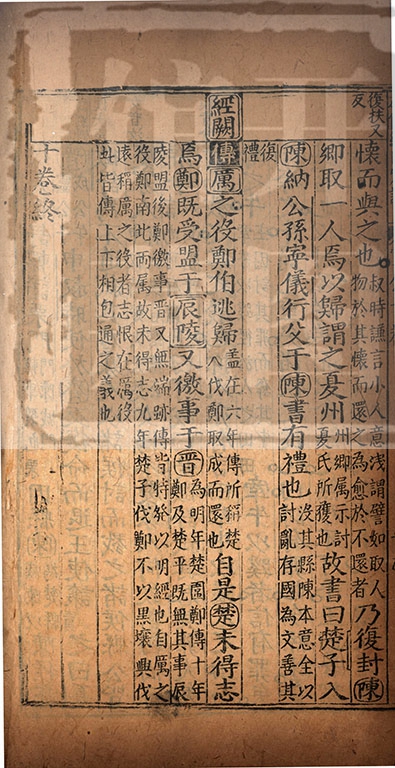 復扶又
反
懷而與之也叔時謙言小人意淺謂譬如取人
物於其懷而還之為愈於不還者乃復封陳
鄉取一人焉以歸謂之夏州州鄉屬示討
夏氏所獲也故書曰楚子入
陳納公孫寧儀行父于陳書有禮也沒其縣陳本意全以
討亂存國為文善其
復
禮
經闕
傳厲之役鄭伯逃歸蓋在六年傳所稱楚
人伐鄭取成而還也自是楚未得志
焉鄭既受盟于辰陵又徼事于晉為明年楚圍鄭傳十年
鄭及楚平既無其事辰
陵盟後鄭徼事晉又無端跡傳皆特發以明經也自厲之
役鄭南北兩屬故未得志九年楚子伐鄭不以黑壤興伐
遠稱厲之役者志恨在厲役
此皆傳上下相包通之義也
十卷終